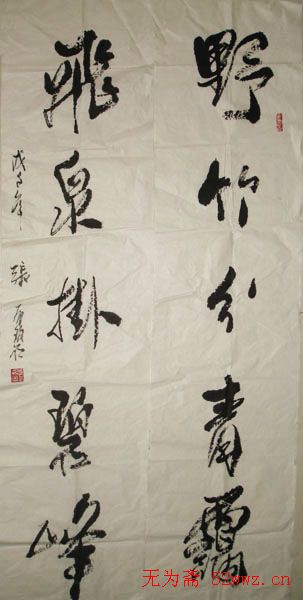 野竹分青靄
飛泉掛碧峰
戊子年
張
无为斋 52wwz.cn